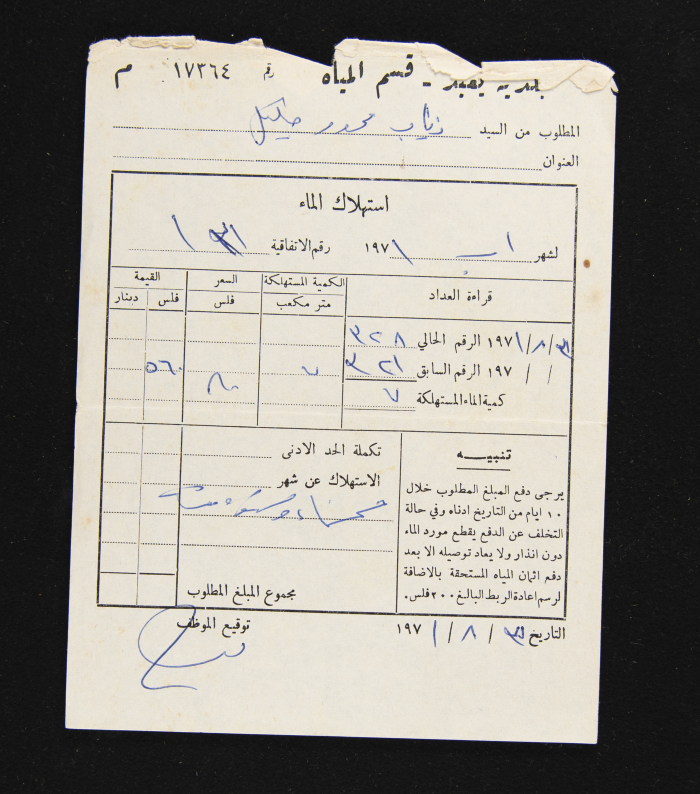 بلدية يعبد - قسم المياه رقم ١٧٣٦٤ م
المطلوب من السيد ذياب محمود
العنوان
استهلاك الماء
لشهر اب ١٩٧١ رقم الاتفاقية
قراءة العداد الكمية المستهلكة السعر القيمة
متر مكعب فلس فلس دينار
٣١/٨/١٩٧١ الرقم الحالي ٣٢٨
/ / ١٩٧ الرقم السابق ٣٢١ ٧ ٥٦٠
كمية الماء المستهلكة ٧ ٨٠
تنبيه
يرجى دفع المبلغ المطلوب خلال
١٠ ايام من التاريخ ادناه وفي حالة
التخلف عن الدفع يقطع مورد الماء
دون انذار ولا يعاد توصيله الا بعد
دفع اثمان المياه المستحقة بالاضافة
لرسم اعادة الربط البالغ ٢٠٠ فلس.
تكملة الحد الادنى
الاستهلاك عن شهر
مجموع المبلغ المطلوب
التاريخ ٣١/٨/١٩٧١ توقيع الموظف